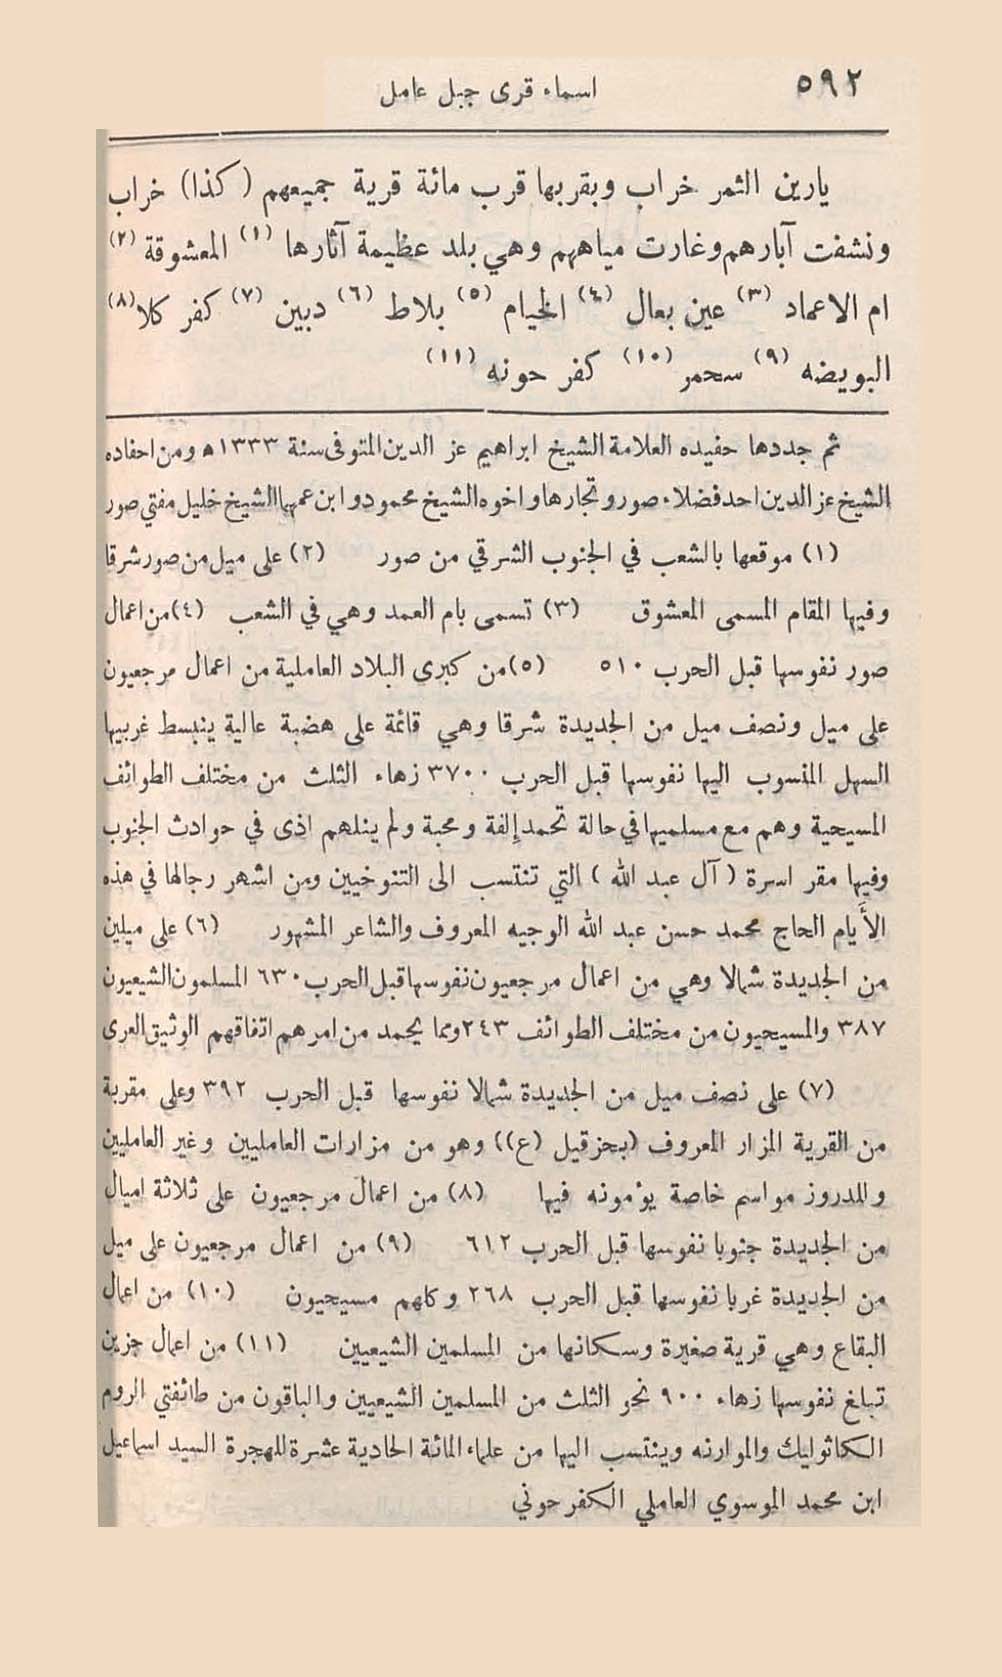 ٥٩٢
اسماء قرى جبل عامل
يارين الثمر خراب وبقربها قرب مائة قرية جميعهم ( كذا ) خراب
ونشفت آبارهم وغارت مياههم وهي بلد عظيمة آثارها (١) المعشوقة (٢)
ام الاعماد (٣) عين بعال (٤) الخيام (٥) بلاط (٦) دبين (٧) كفر كلا (٨)
البويضه (٩) سحمر (١٠) كفر حونه (١١)
ثم جددها حفيده العلامة الشيخ ابراهيم عز الدين المتوفى سنة ١٣٣٣ ه ومن احفاده
الشيخ عز الدين احد فضلاء صور وتجارها واخوه الشيخ محمود وابن عمهما الشيخ خليل مفتي صور
(١) موقعها بالشعب في الجنوب الشرقي من صور (٢) على ميل من صور شرقا
وفيها المقام المسمى المعشوق (٣) تسمى بام العمد وهي في الشعب (٤) من اعمال
صور نفوسها قبل الحرب ٥١٠ (٥) من كبرى البلاد العاملية من اعمال مرجعيون
على ميل ونصف ميل من الجديدة شرقا وهي قائمة على هضبة عالية ينبسط غربيها
السهل المنسوب اليها نفوسها قبل الحرب ٣٧٠٠ زهاء الثلث من مختلف الطوائف
المسيحية وهم مع مسلميها في حالة تحمد إلفة ومحبة ولم ينلهم اذى في حوادث الجنوب
وفيها مقر اسرة ( آل عبد الله ) التي تنتسب الى التنوخيين ومن اشهر رجالها في هذه
الأيام الحاج محمد حسن عبد الله الوجيه المعروف والشاعر المشهور (٦) على ميلين
من الجديدة شمالا وهي من اعمال مرجعيون نفوسها قبل الحرب ٦٣٠ المسلمون الشيعيون
٣٨٧ والمسيحيون من مختلف الطوائف ٢٤٣ ومما يحمد من امرهم اتفاقهم الوثيق العرى
(٧) على نصف ميل من الجديدة شمالا نفوسها قبل الحرب ٣٩٢ وعلى مقربة
من القرية المزار المعروف (بحزقيل (ع)) وهو من مزارات العامليين وغير العامليين
وللدروز مواسم خاصة يؤمونه فيها (٨) من اعمال مرجعيون على ثلاثة اميال
من الجديدة جنوبا نفوسها قبل الحرب ٦١٢ (٩) من اعمال مرجعيون على ميل
من الجديدة غربا نفوسها قبل الحرب ٢٦٨ وكلهم مسيحيون (١٠) من اعمال
البقاع وهي قرية صغيرة وسكانها من المسلمين الشيعيين (١١) من اعمال جزين
تبلغ نفوسها زهاء ٩٠٠ نحو الثلث من المسلمين الشيعيين والباقون من طائفتي الروم
الكاثوليك والموارنه وينتسب اليها من علماء المائة الحادية عشرة للهجرة السيد اسماعيل
ابن محمد الموسوي العاملي الكفرحوني